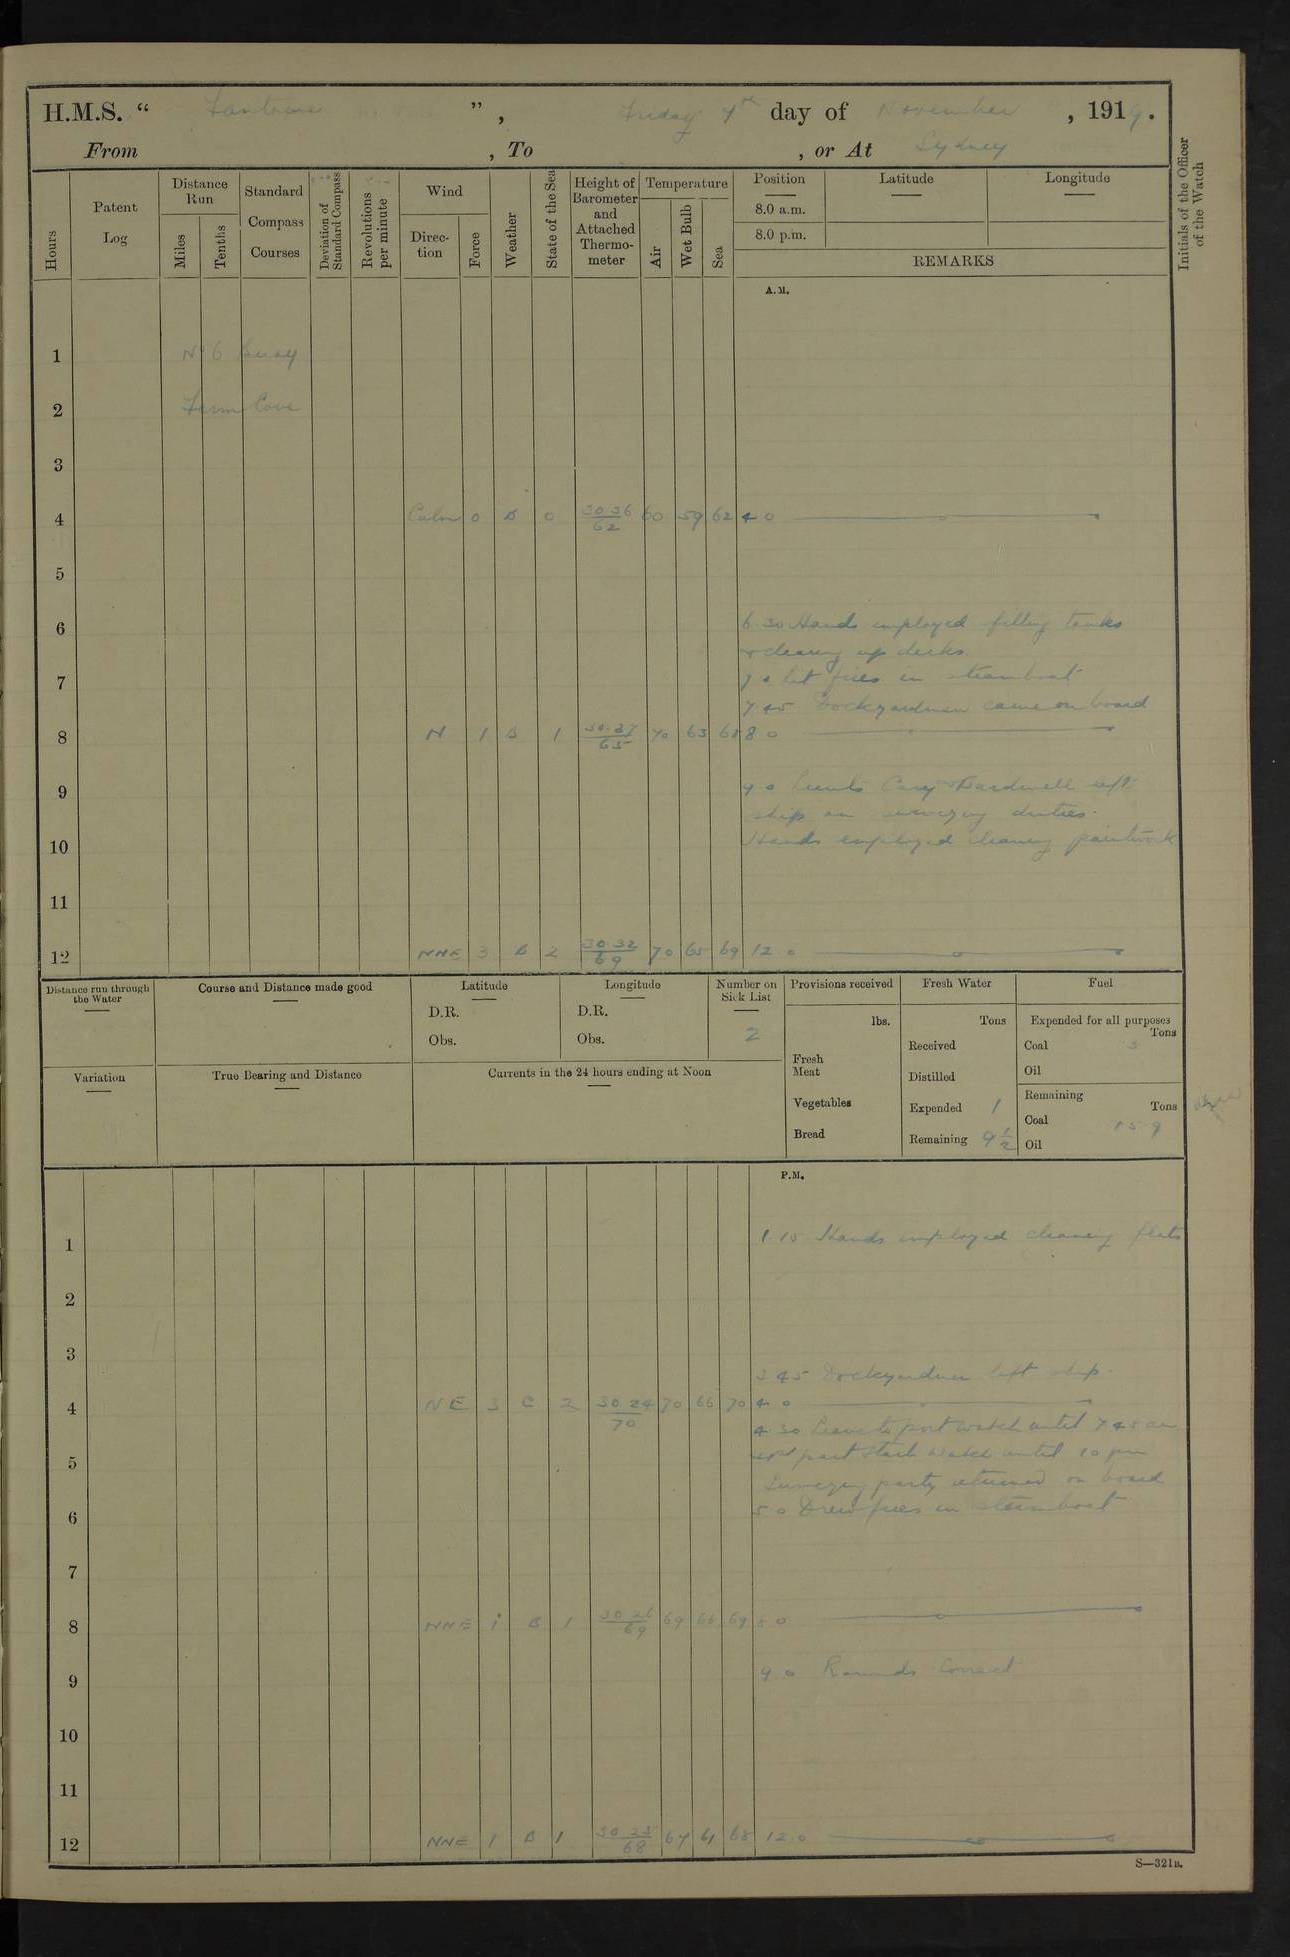 H.M.S. " Fantome ", Friday 7th day of November, 1919.
From , To , or At Sydney
Hours
Patent Log
Distance Run
Miles
Tenths
Standard Compass Courses
Deviation of Standard Compass
Revolutions per minute
Wind
Direction
Force
Weather
State of the Sea
Height of Barometer and Attached Thermometer
Temperature
Air
Wet Bulb
Sea
Position
8.0 a.m.
8.0 p.m.
Latitude
Longitude
REMARKS
Initials of the Officer of the Watch
A.M.
1 No 6 Buoy
2 Farm Cove
3
4 Calm 0 B 0 30 36/62 60 59 62 4 0
5
6 6.30 Hands employed filling tanks
& clearing up decks.
7 7 0 Lit fires in steamboat
7 45 Dockyardmen came on board
8 N 1 B 1 30.37/65 70 63 68 8 0
9 9 0 Lieuts Cary & Bardwell left
ship on surveying duties.
10 Hands employed cleaning paintwork
11
12 NNE 3 B 2 30 32/69 70 65 69 12 0
Distance run through the Water
Course and Distance made good
Latitude
D.R.
Obs.
Longitude
D.R.
Obs.
Number on Sick List
2
Provisions received
lbs.
Fresh Meat
Vegetables
Bread
Fresh Water
Tons
Received
Distilled
Expended 1
Remaining 9 1/2
Fuel
Expended for all purposes
Tons
Coal 3
Oil
Remaining
Tons
Coal 159
Oil
Variation
True Bearing and Distance
Currents in the 24 hours ending at Noon
P.M.
1 1.15 Hands employed cleaning flats
2
3
3 45 Dockyardmen left ship.
4 NE 3 C 2 30 24/70 70 66 70 4 0
4.30 Leave to port watch until 7 45 am
5 part Starb watch until 10 pm
Surveying party returned on board
6 5 0 Drew fires in steamboat
7
8 NNE 1 B 1 30 26/69 69 66 69 8 0
9 9 0 Rounds Correct
10
11
12 NNE 1 B 1 30 25/68 67 61 68 12.0
S—321B.